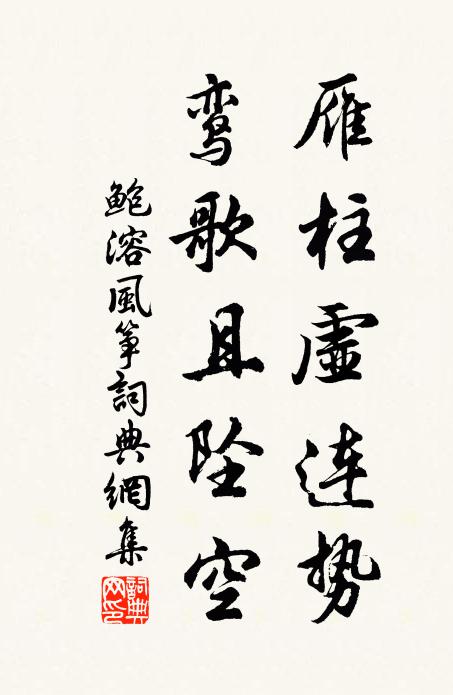 雁柱虚连势
鸾歌且坠空
鲍溶風筝詞典網集
詞典网印